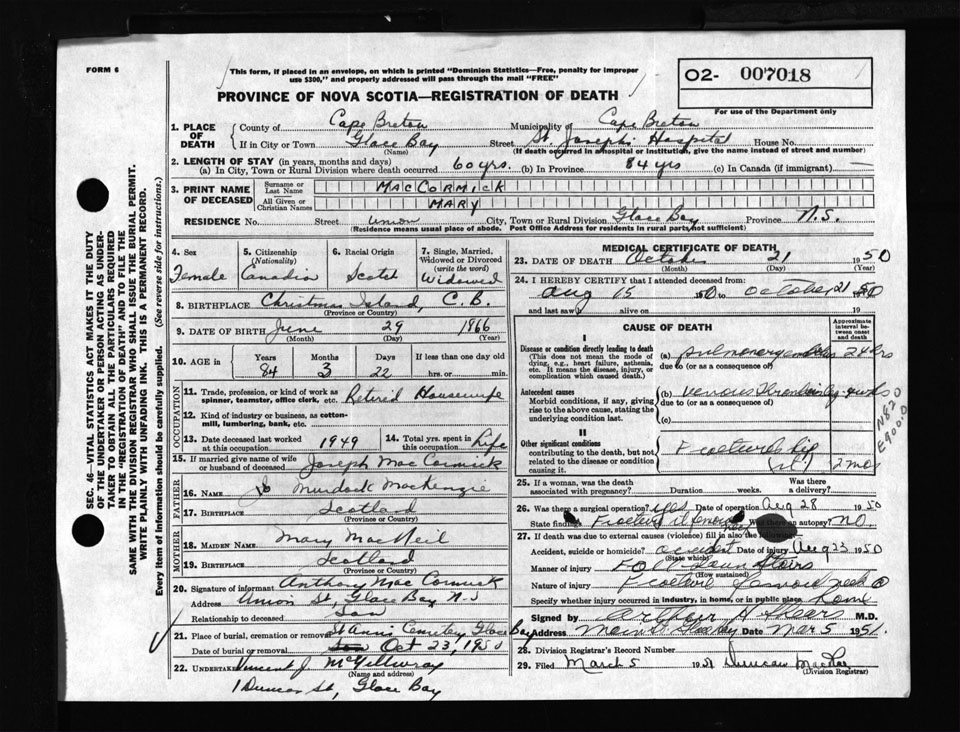 FORM 6
This form, if placed in an envelope, on which is printed "Dominion Statistics—Free, penalty for improper
use $300," and properly addressed will pass through the mail "FREE"
PROVINCE OF NOVA SCOTIA—REGISTRATION OF DEATH
O2- 007018
For use of the Department only
SEC. 46—VITAL STATISTICS ACT MAKES IT THE DUTY
OF THE UNDERTAKER OR PERSON ACTING AS UNDER-
TAKER TO OBTAIN ALL THE PARTICULARS REQUIRED
IN THE "REGISTRATION OF DEATH" AND TO FILE THE
SAME WITH THE DIVISION REGISTRAR WHO SHALL ISSUE THE BURIAL PERMIT.
WRITE PLAINLY WITH UNFADING INK. THIS IS A PERMANENT RECORD.
Every item of information should be carefully supplied. (See reverse side for instructions.)
1. PLACE OF DEATH
County of Cape Breton Municipality of Cape Breton
If in City or Town Glace Bay Street St. Joseph's Hospital House No.
(Name) (If death occurred in a hospital or institution, give the name instead of street and number)
2. LENGTH OF STAY (in years, months and days)
(a) In City, Town or Rural Division where death occurred 60 yrs. (b) In Province 84 yrs (c) In Canada (if immigrant)
3. PRINT NAME OF DECEASED
Surname or Last Name MACCORMICK
All Given or Christian Names MARY
RESIDENCE No. Street Union City, Town or Rural Division Glace Bay Province N.S.
(Residence means usual place of abode. Post Office Address for residents in rural parts not sufficient)
4. Sex
Female
5. Citizenship (Nationality)
Canadian
6. Racial Origin
Scotch
7. Single, Married, Widowed or Divorced (write the word)
Widowed
8. BIRTHPLACE Christmas Island, C.B.
(Province or Country)
9. DATE OF BIRTH June 29 1866
(Month) (Day) (Year)
10. AGE in Years Months Days If less than one day old
84 3 22 hrs. or min.
OCCUPATION
11. Trade, profession, or kind of work as
spinner, teamster, office clerk, etc. Retired Housewife
12. Kind of industry or business, as cotton-
mill, lumbering, bank, etc.
13. Date deceased last worked at this occupation 1949
14. Total yrs. spent in this occupation Life
15. If married give name of wife
or husband of deceased Joseph MacCormick
FATHER
16. Name Murdock MacKenzie
17. Birthplace Scotland
(Province or Country)
MOTHER
18. Maiden Name Mary MacNeil
19. Birthplace Scotland
(Province or Country)
20. Signature of informant Anthony MacCormick
Address Union St, Glace Bay N.S
Relationship to deceased Son
21. Place of burial, cremation or removal St Anns Cemetery Glace Bay
Date of burial or removal Oct 23, 1950
22. Undertaker Vincent J. McGillivray
(Name and address)
1 Duncan St, Glace Bay
MEDICAL CERTIFICATE OF DEATH
23. DATE OF DEATH October 21 1950
(Month) (Day) (Year)
24. I HEREBY CERTIFY that I attended deceased from:
Aug 15 1950 to October 21 1950
and last saw alive on 19
CAUSE OF DEATH
Approximate interval between onset and death
I
Disease or condition directly leading to death
(This does not mean the mode of dying, e.g., heart failure, asthenia, etc. It means the disease, injury, or complication which caused death.)
(a) pulmonary embolus 24 hrs
due to (or as a consequence of)
Antecedent causes
Morbid conditions, if any, giving rise to the above cause, stating the underlying condition last.
(b) venous Thrombosis
due to (or as a consequence of)
(c)
II
Other significant conditions
contributing to the death, but not related to the disease or condition causing it.
Fractured hip
2 mos
N820
E900.0
25. If a woman, was the death Was there
associated with pregnancy? Duration weeks. a delivery?
26. Was there a surgical operation? yes Date of operation Aug 28 1950
State findings Fracture Was there autopsy? NO.
27. If death was due to external causes (violence) fill in also the
Accident, suicide or homicide? accident Date of injury Aug 23 1950
(State which)
Manner of injury Fall down stairs
(How sustained)
Nature of injury Fracture femoral neck
Specify whether injury occurred in industry, in home, or in public place home
Signed by Arthur H Shears M.D.
Address Main St. Glace Bay Date Mar 5 1951.
28. Division Registrar's Record Number
29. Filed March 5 1951 Duncan
(Division Registrar)